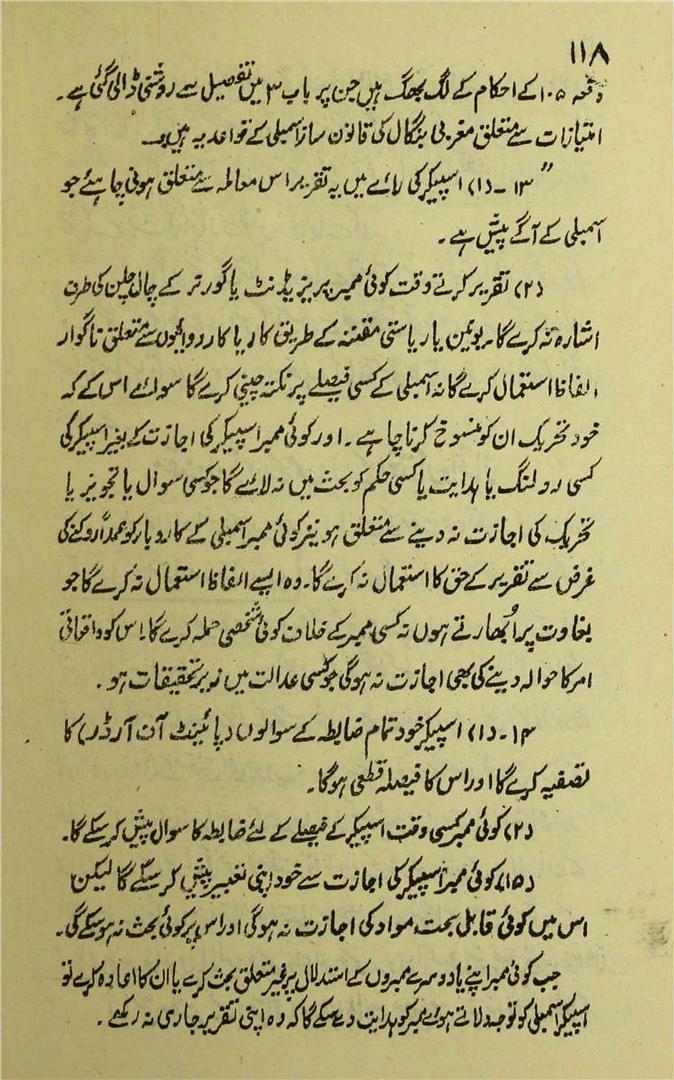 ۱۱۸
دفعہ ۱۰۵ کے احکام کے لگ بھگ ہیں جن پر باب ۳ میں تفصیل سے روشنی ڈالی گئی ہے۔
امتیازات سے متعلق مغربی بنگال کی قانون ساز اسمبلی کے قواعد یہ ہیں:۔
”۱۳۔ (۱) اسپیکر کی رائے میں یہ تقریر اس معاملہ سے متعلق ہونی چاہئے جو
اسمبلی کے آگے پیش ہے۔
(۲) تقریر کرتے وقت کوئی ممبر پریزیڈنٹ یا گورنر کے چال چلن کی طرف
اشارہ نہ کرے گا۔ یونین یا ریاستی مقننہ کے طریق کار یا کارروائیوں سے متعلق ناگوار
الفاظ استعمال کرے گا نہ اسمبلی کے کسی فیصلے پر نکتہ چینی کرے گا سوائے اس کے کہ
خود تحریک ان کو منسوخ کرنا چاہے۔ اور کوئی ممبر اسپیکر کی اجازت کے بغیر اسپیکر کی
کسی رولنگ یا ہدایت یا کسی حکم کو بحث میں نہ لائے گا جو کسی سوال یا تجویز یا
تحریک کی اجازت نہ دینے سے متعلق ہو نیز کوئی ممبر اسمبلی کے کاروبار کو عمداً روکنے کی
غرض سے تقریر کے حق کا استعمال نہ کرے گا۔ وہ ایسے الفاظ استعمال نہ کرے گا جو
بغاوت پر اُبھارتے ہوں نہ کسی ممبر کے خلاف کوئی شخصی حملہ کرے گا۔ اس کو واقعاتی
امر کا حوالہ دینے کی بھی اجازت نہ ہوگی جو کسی عدالت میں زیر تحقیقات ہو۔
۱۴۔ (۱) اسپیکر خود تمام ضابطہ کے سوالوں (پائینٹ آف آرڈر) کا
تصفیہ کرے گا اور اس کا فیصلہ قطعی ہوگا۔
(۲) کوئی ممبر کسی وقت اسپیکر کے فیصلے کے لئے ضابطہ کا سوال پیش کر سکے گا۔
(۱۵) کوئی ممبر اسپیکر کی اجازت سے خود اپنی تعبیر پیش کر سکے گا لیکن
اس میں کوئی قابل بحث مواد کی اجازت نہ ہوگی اور اس پر کوئی بحث نہ ہو سکے گی۔
جب کوئی ممبر اپنے یا دوسرے ممبروں کے استدلال پر غیر متعلق بحث کرے یا ان کا اعادہ کرے تو
اسپیکر اسمبلی کو توجہ دلاتے ہوئے ممبر کو ہدایت دے سکے گا کہ وہ اپنی تقریر جاری نہ رکھے۔